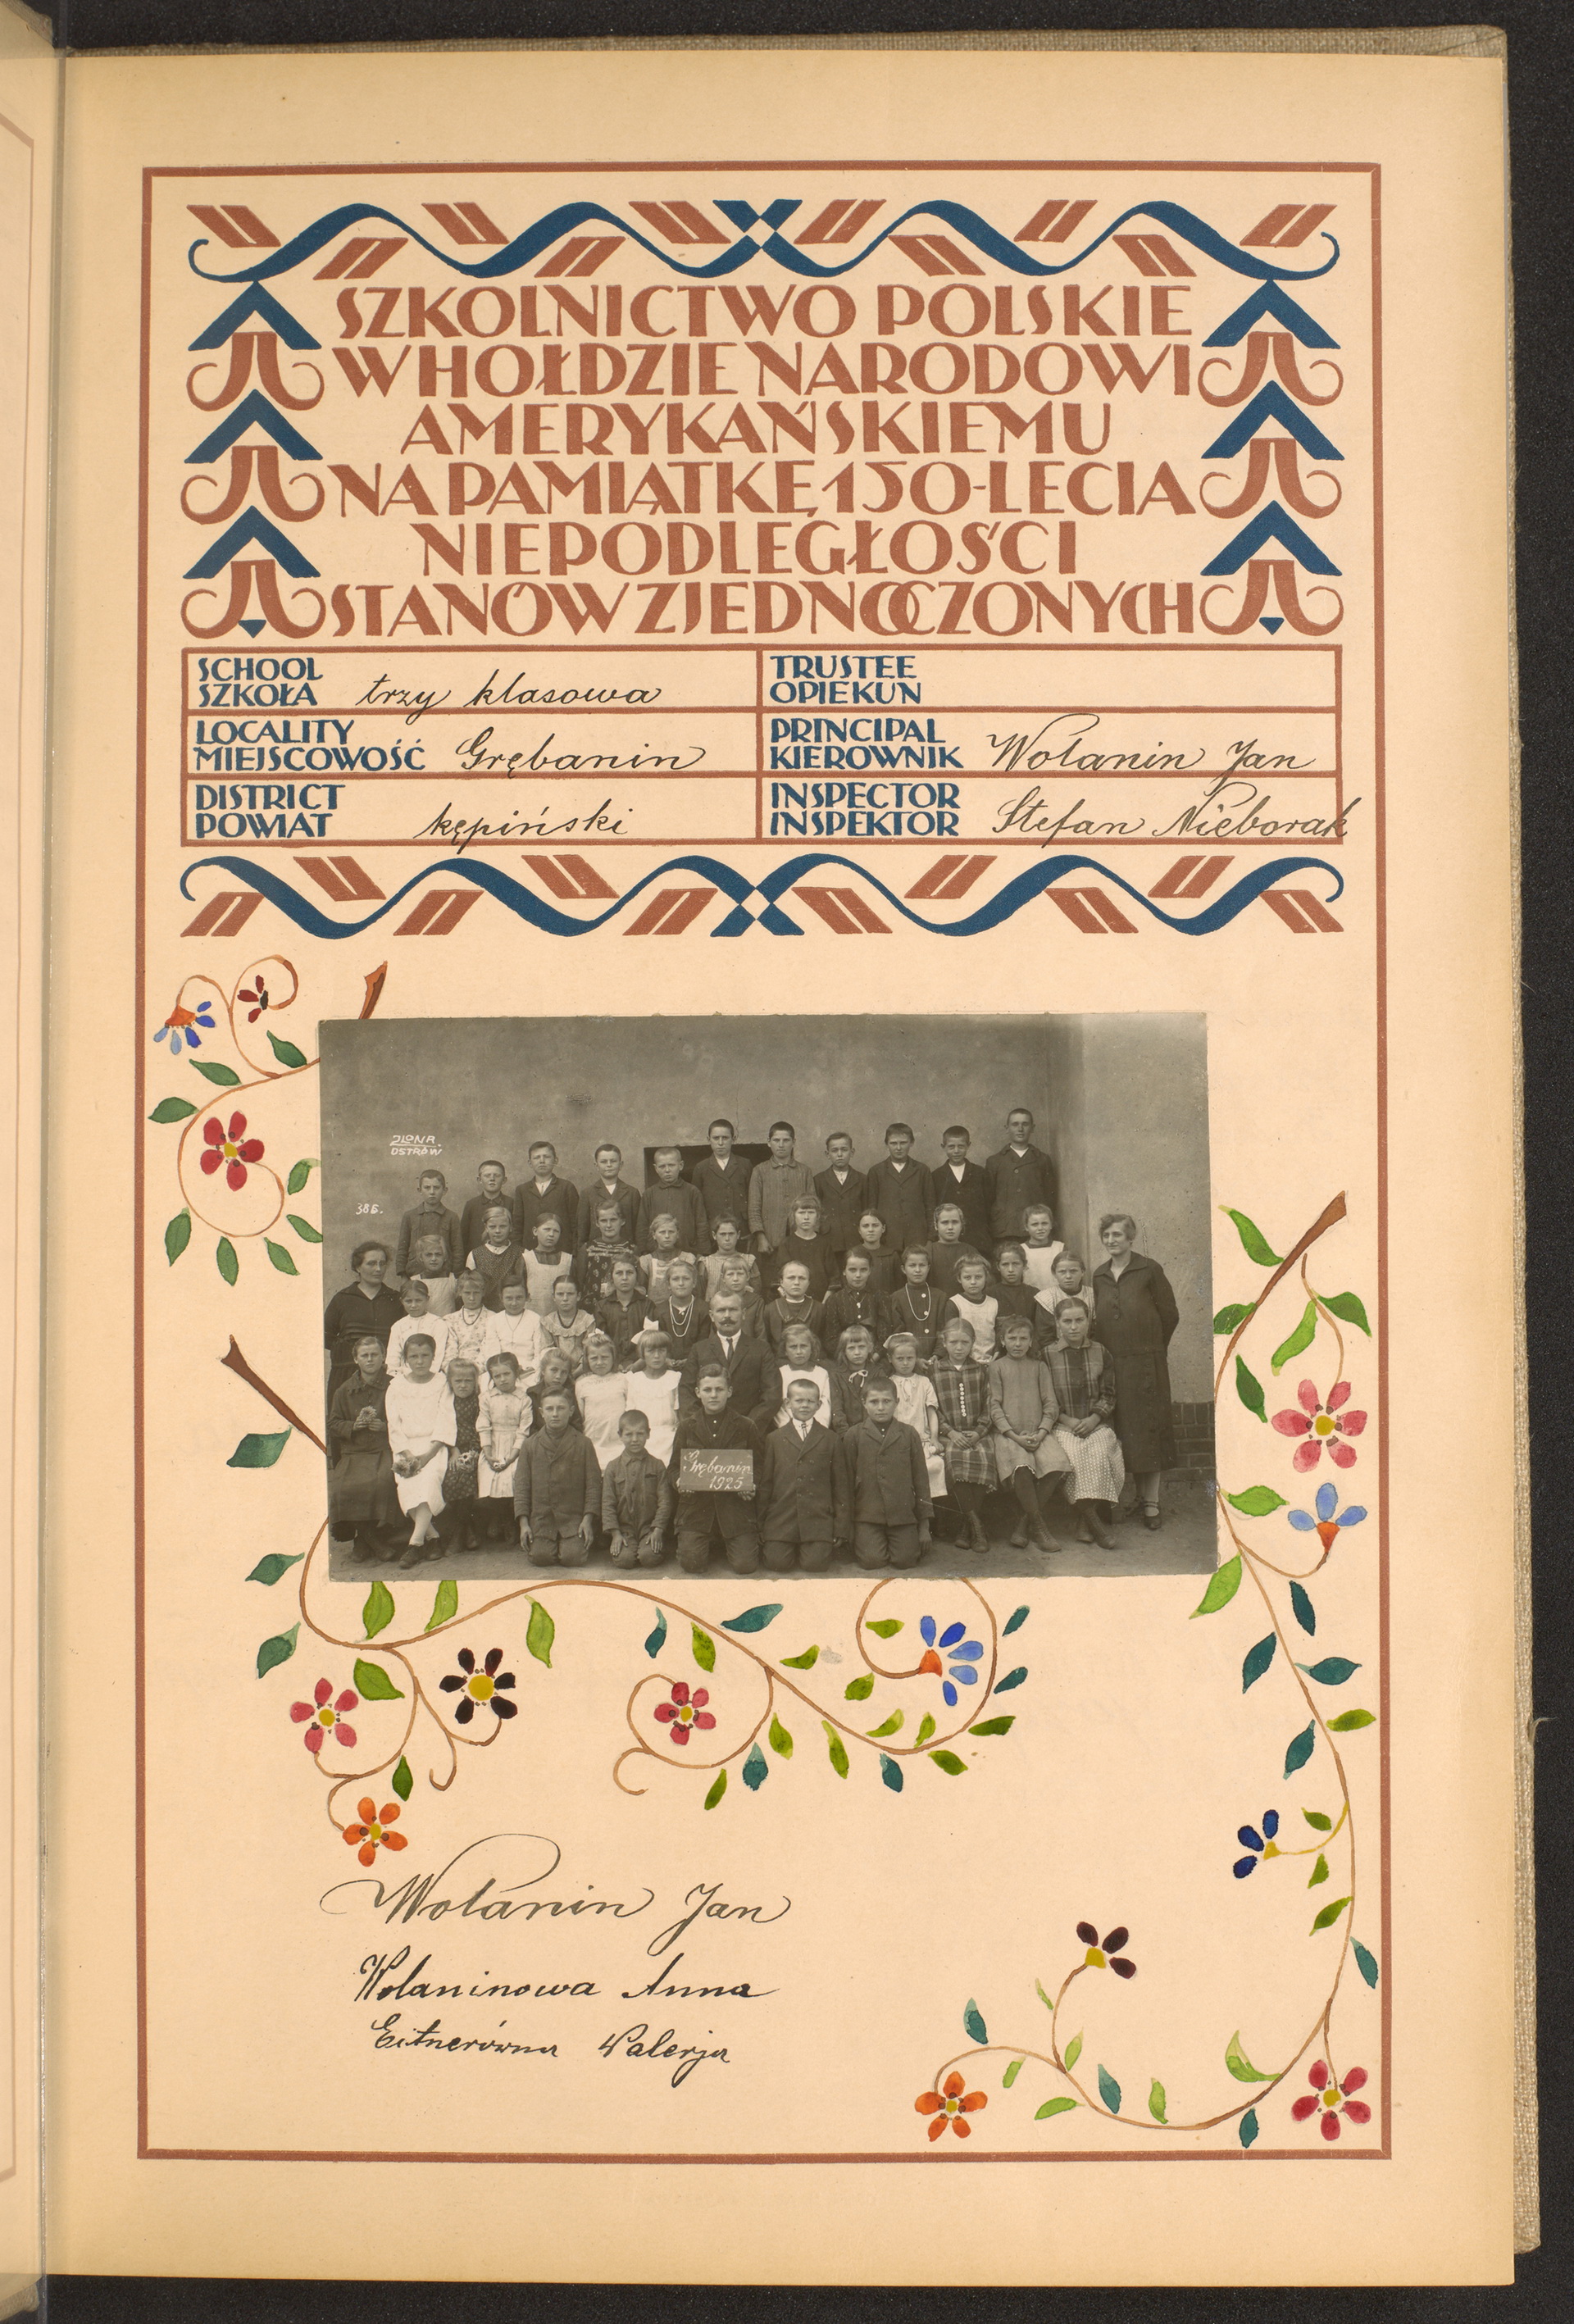 SZKOLNICTWO POLSKIE
W HOŁDZIE NARODOWI
AMERYKAŃSKIEMU
NA PAMIĄTKĘ 150-LECIA
NIEPODLEGŁOŚCI
STANÓW ZJEDNOCZONYCH
SCHOOL
SZKOŁA trzy klasowa
TRUSTEE
OPIEKUN
LOCALITY
MIEJSCOWOŚĆ Grębanin
PRINCIPAL
KIEROWNIK Wolanin Jan
DISTRICT
POWIAT kępiński
INSPECTOR
INSPEKTOR Stefan Nieborak
OSTRÓW
386.
Grębanin
1925
Wolanin Jan
Wolaninowa Anna
Eitnerówna Walerja